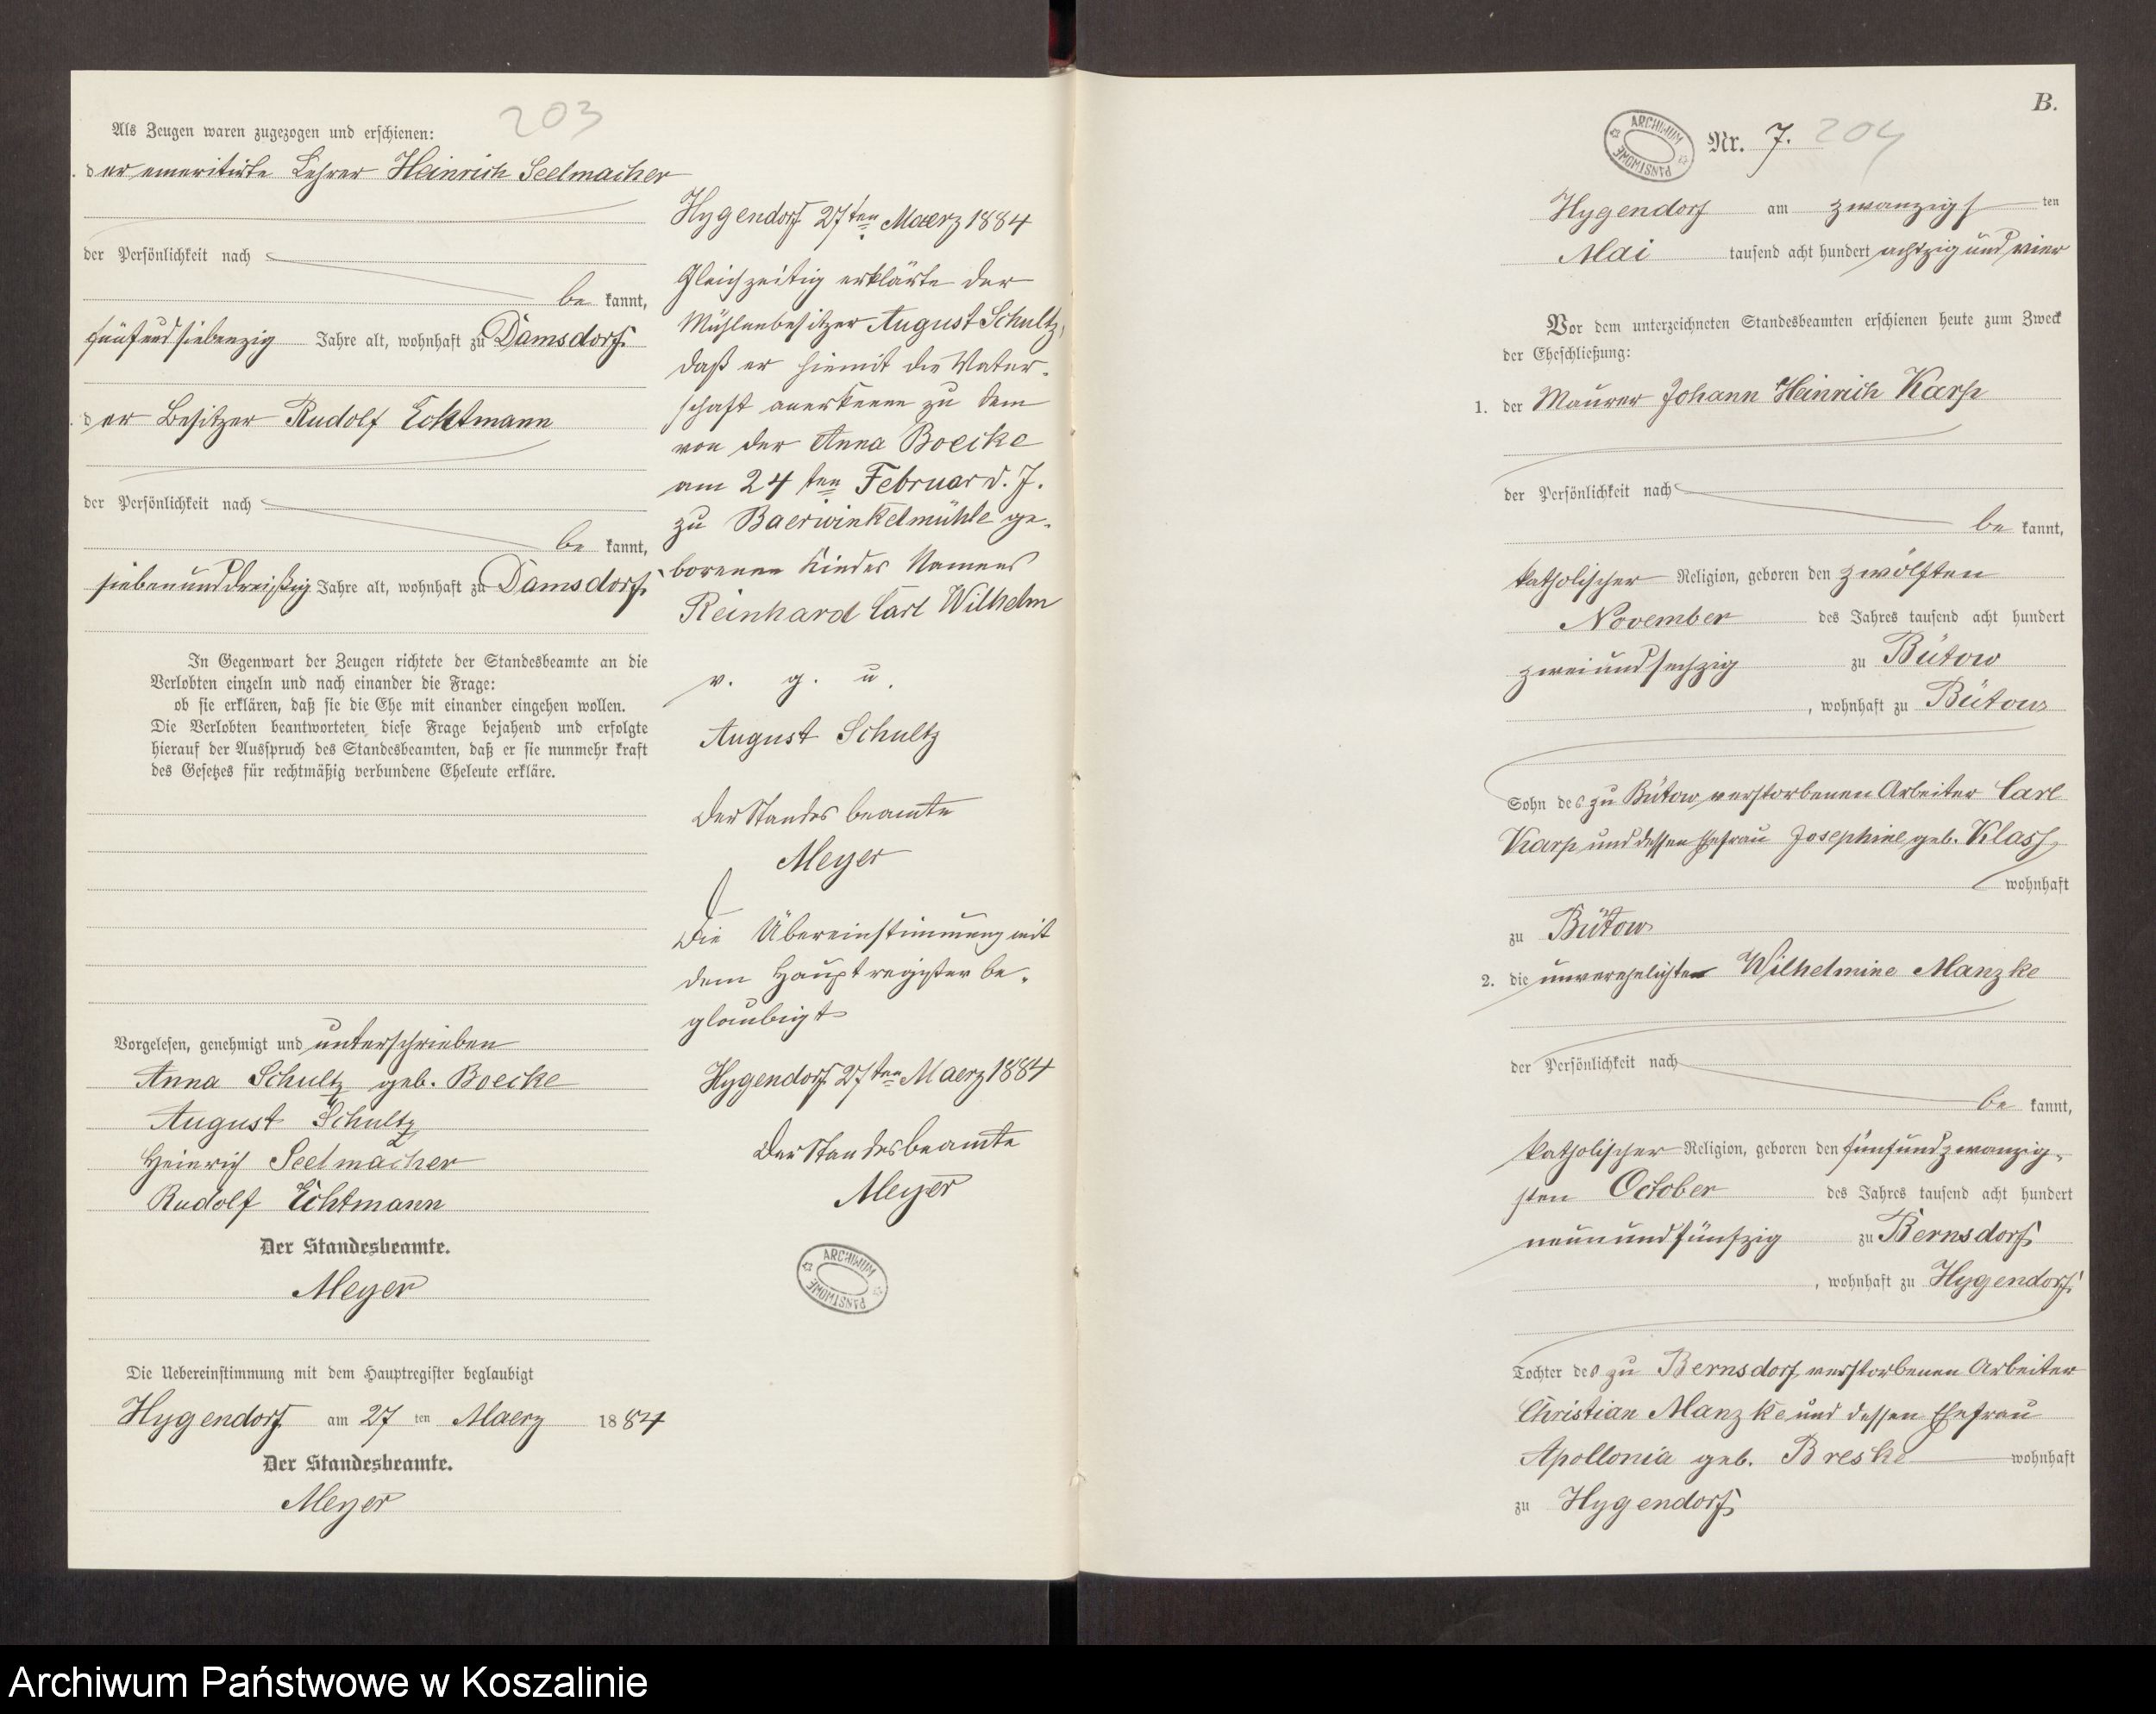 203
Als Zeugen waren zugezogen und erschienen:
der emeritirte Lehrer Heinrich Seelmacher
der Persönlichkeit nach
be kannt,
fünfundsiebenzig Jahre alt, wohnhaft zu Damsdorf.
der Besitzer Rudolf Echtmann
der Persönlichkeit nach
be kannt,
siebenunddreißig Jahre alt, wohnhaft zu Damsdorf.
In Gegenwart der Zeugen richtete der Standesbeamte an die
Verlobten einzeln und nach einander die Frage:
ob sie erklären, daß sie die Ehe mit einander eingehen wollen.
Die Verlobten beantworteten diese Frage bejahend und erfolgte
hierauf der Ausspruch des Standesbeamten, daß er sie nunmehr kraft
des Gesetzes für rechtmäßig verbundene Eheleute erkläre.
Vorgelesen, genehmigt und unterschrieben
Anna Schultz geb. Boecke
August Schultz
Heinrich Seelmacher
Rudolf Echtmann
Der Standesbeamte.
Meyer
Die Uebereinstimmung mit dem Hauptregister beglaubigt
Hygendorf am 27 ten Maerz 1884
Der Standesbeamte.
Meyer
Hygendorf 27ten Maerz 1884
Gleichzeitig erklärte der
Mühlenbesitzer August Schultz,
daß er hiemit die Vater-
schaft anerkenne zu dem
von der Anna Boecke
am 24 ten Februar d. J.
zu Baerwinkelmühle ge-
borenen Kindes Namens
Reinhard Carl Wilhelm
v. g. u.
August Schultz
Der Standesbeamte
Meyer
Die Übereinstimmung mit
dem Hauptregister be-
glaubigt
Hygendorf 27ten Maerz 1884
Der Standesbeamte
Meyer
ARCHIWUM PAŃSTWOWE
B.
ARCHIWUM PAŃSTWOWE
Nr. 7. 204
Hygendorf am zwanzigs ten
Mai tausend acht hundert achtzig und vier
Vor dem unterzeichneten Standesbeamten erschienen heute zum Zweck
der Eheschließung:
1. der Maurer Johann Heinrich Karp
der Persönlichkeit nach
be kannt,
katholischer Religion, geboren den zwölften
November des Jahres tausend acht hundert
zweiundsechzig zu Bütow
, wohnhaft zu Bütow
Sohn des zu Bütow verstorbenen Arbeiter Carl
Karp und dessen Ehefrau Josephine geb. Klass
wohnhaft
zu Bütow
2. die unverehelichte Wilhelmine Manzke
der Persönlichkeit nach
be kannt,
katholischer Religion, geboren den fünfundzwanzig-
sten October des Jahres tausend acht hundert
neunundfünfzig zu Bernsdorf
, wohnhaft zu Hygendorf.
Tochter des zu Bernsdorf verstorbenen Arbeiter
Christian Manzke und dessen Ehefrau
Apollonia geb. Breske wohnhaft
zu Hygendorf
Archiwum Państwowe w Koszalinie